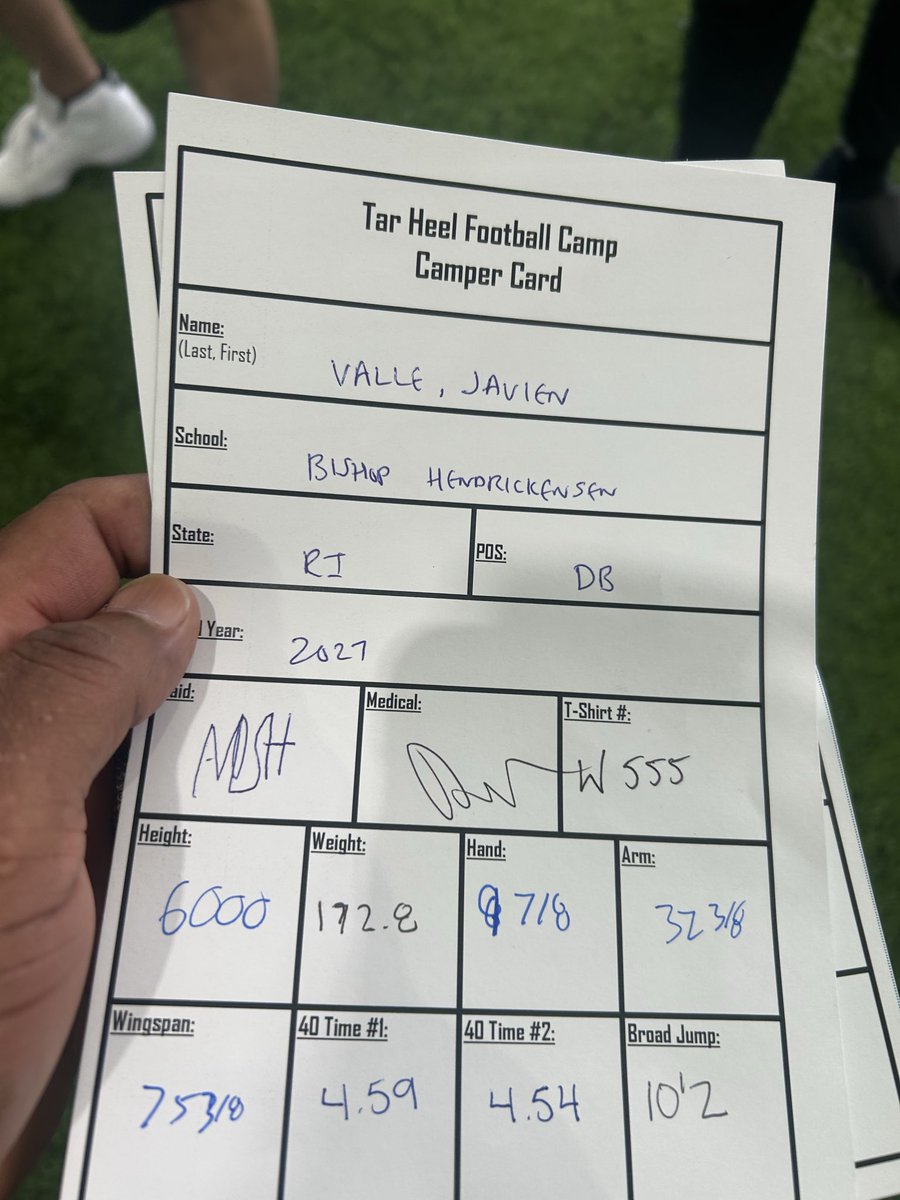 Tar Heel Football Camp
Camper Card
Name:
(Last, First)
VALLE, JAVIEN
School:
BISHOP HENDRICKENSEN
State:
RI
POS:
DB
Year:
2027
Medical:
T-Shirt #:
W 555
Height:
6000
Weight:
172.8
Hand:
7/8
Arm:
32 3/8
Wingspan:
75 3/8
40 Time #1:
4.59
40 Time #2:
4.54
Broad Jump:
10'2